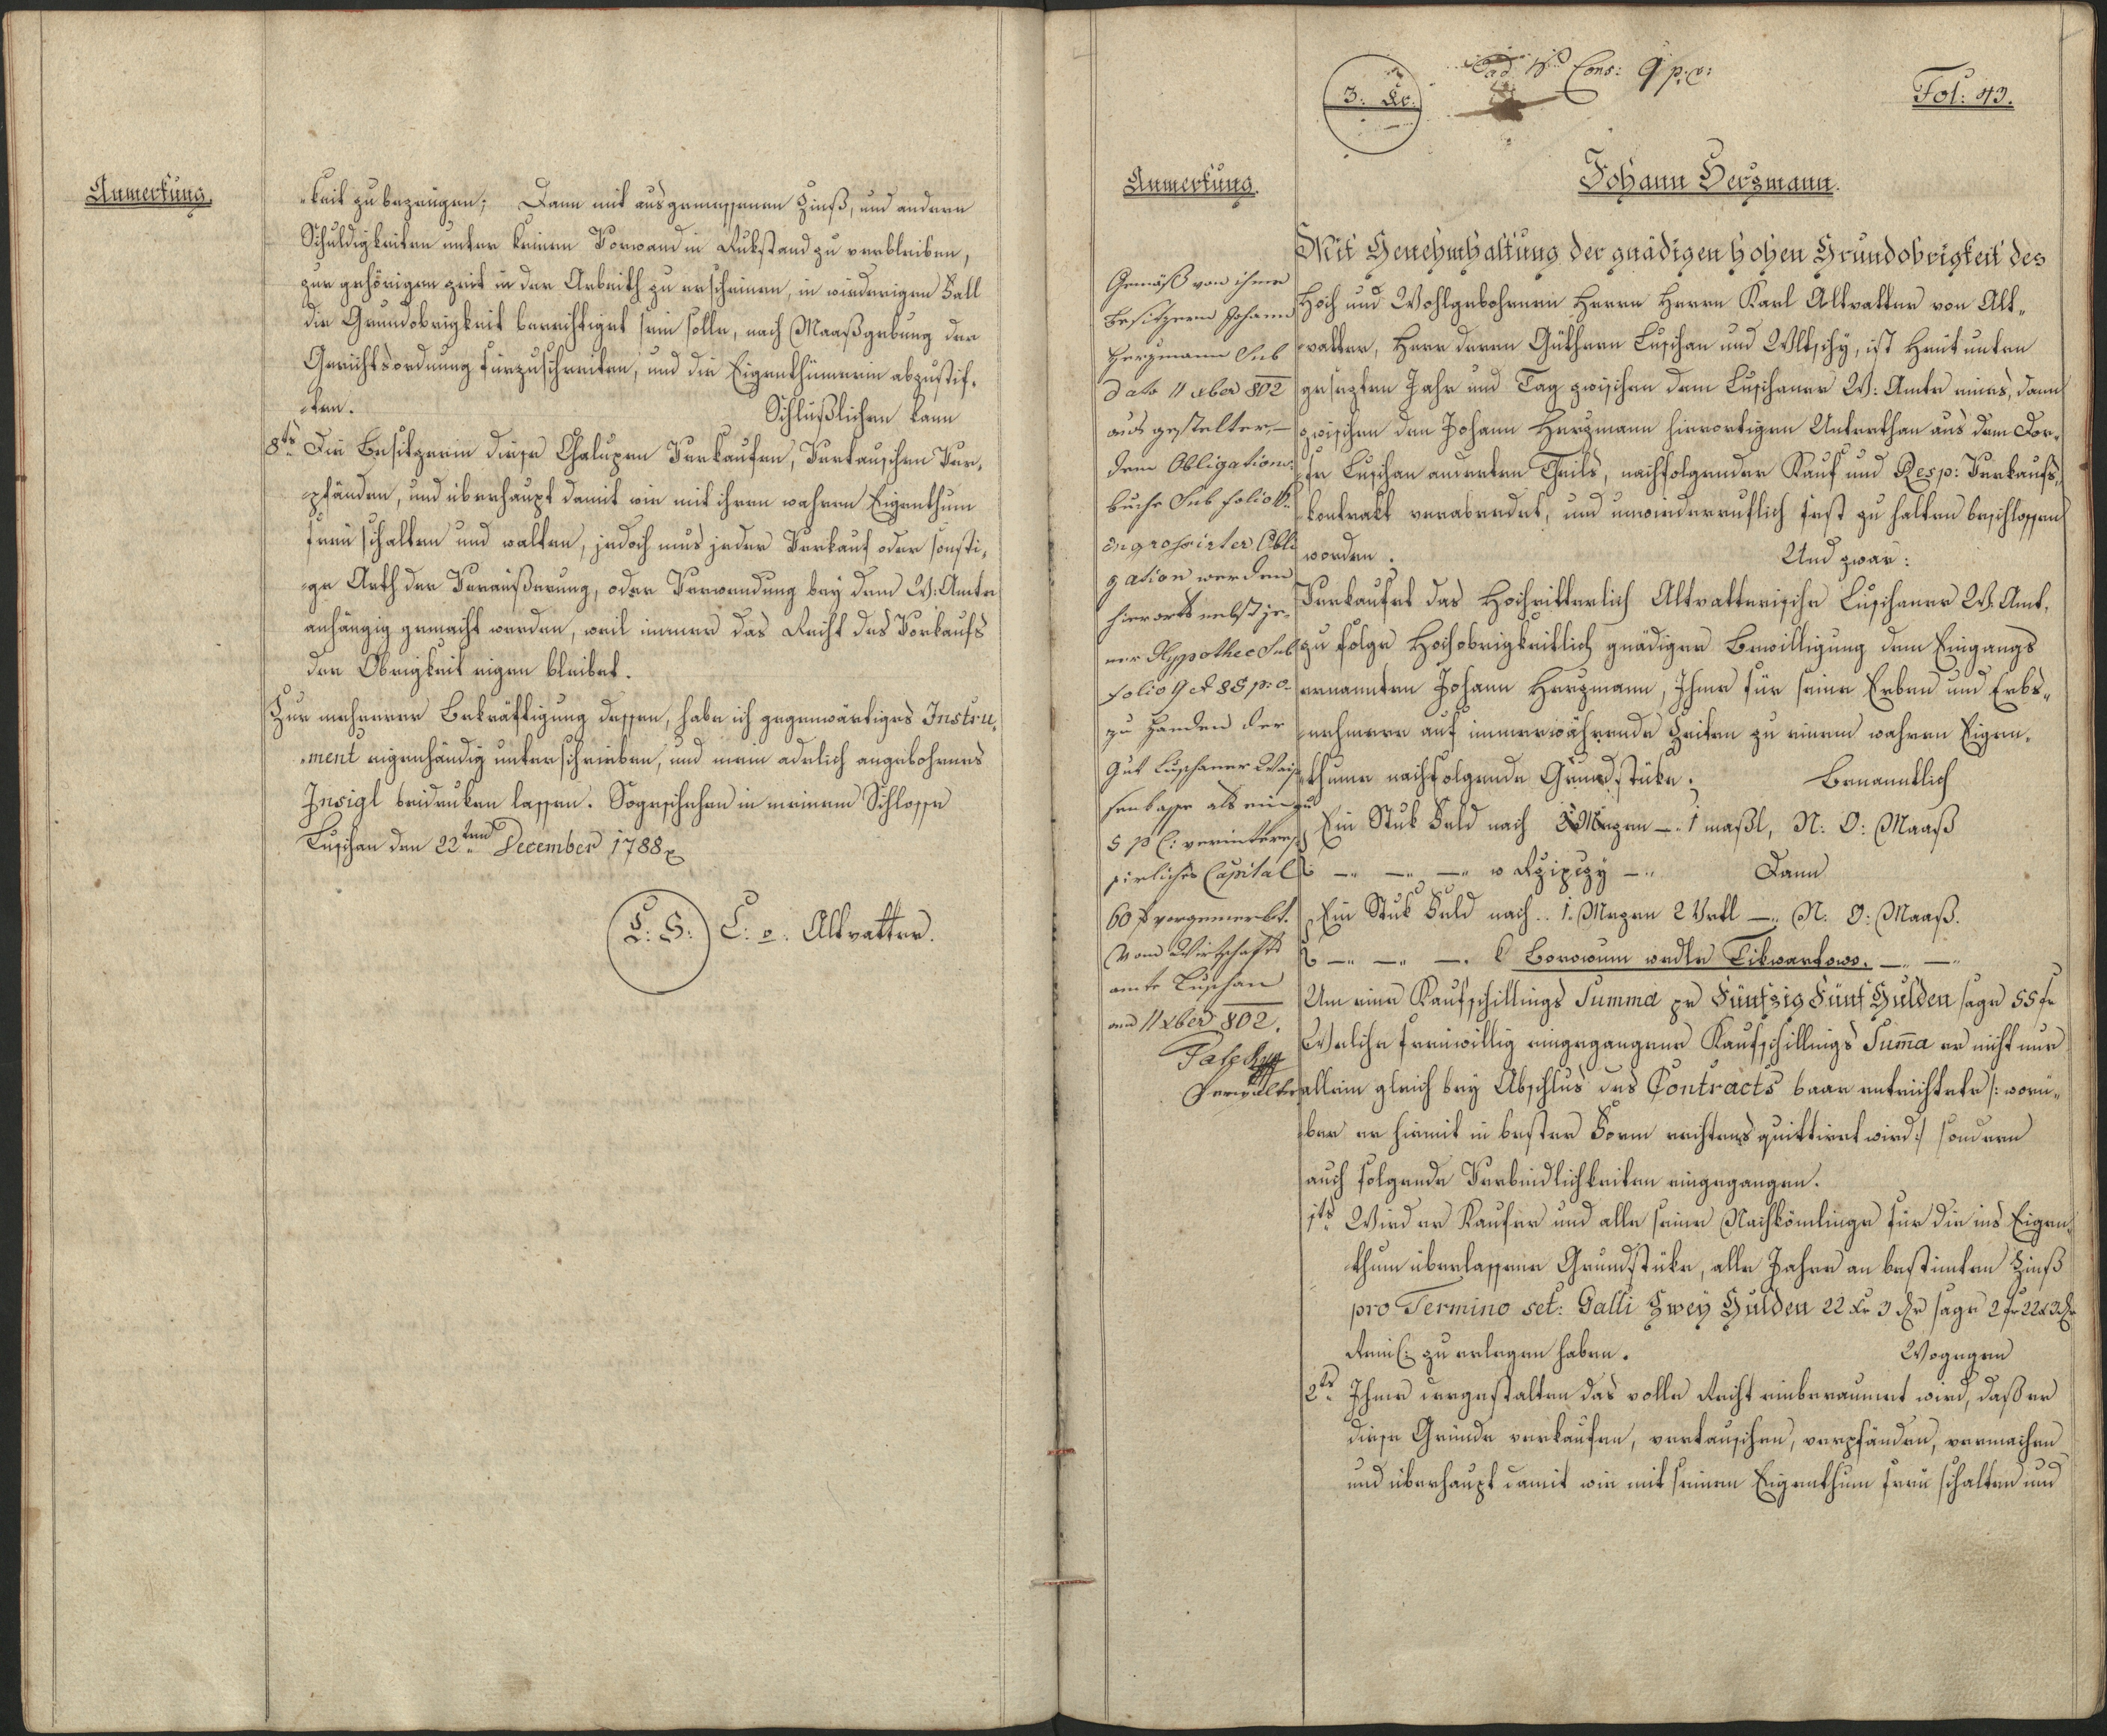 Anmerkung.
-keit zu bezeügen; Dann mit ausgemessenen Zinß, und andern
Schuldigkeiten unter keinen Vorwand in Rukstand zu verbleiben,
zur gehörigen zeit in der Arbeith zu erscheinen, in wiedrigen Fall
die Grundobrigkeit berechtiget sein solle, nach Maaßgebung der
Gerichtsordnung fürzuschreiten, und die Eigenthümerin abzustif-
-ten. Schlüßlichen kann
8ts Die Besitzerin diese Chalupen Verkaufen, Vertauschen Ver-
-pfänden, und überhaupt damit wie mit ihren wahren Eigenthum
freü schalten und walten, jedoch mus jeder Verkauf oder sonsti-
-ge Arth der Veräußerung, oder Verwendung bey dem W: Amte
anhängig gemacht werden, weil immer das Recht des Vorkaufs
der Obrigkeit eigen bleibet.
Zur mehrerer Bekräftigung dessen, habe ich gegenwärtiges Instru-
-ment eigenhändig unterschrieben, und mein adelich angebohrnes
Insigl beidruken lassen. So geschehen in meinem Schlosse
Luschan den 22ten December 1788
L: S: C: v. Altvatter.
3. Xr.
ad N Cons: 9 p: o:
Fol: 43.
Anmerkung.
Johann Herzmann.
Gemäß von ihme
Besitzern Johann
Herzmann Sub
dato 11 xber 802
aus gestelter, –
dem Obligations-
buche Sub folio
ingrossirter Obli
gation werden
hierorts nebst je-
ner Hypothec Sub
folio 9 et 88 p: o.
zu Handen der
Gut Luschaner Wai-
senkasse als ein zu
5 p C: verinteres-
sirliches Capital
60 f vorgemerkt.
Vom Wirtschafts
amte Luschan
am 11 xber 802.
Verwalter
Mit Genehmhaltung der gnädigen hohen Grundobrigkeit des
Hoch und Wohlgebohrnen Herrn Herrn Karl Altvatter von Alt-
vatter, Herr deren Güthern Luschan und Wltschy, ist Heüt unten
gesezten Jahr und Tag zwischen dem Luschaner W: Amte eines, dann
zwischen den Johann Herzmann hierortigen Unterthan aus dem Dor-
fe Luschan anderten Theils, nachfolgender Kauf und Resp: Verkaufs-
kontrakt verabredet, und unwiederruflich fest zu halten beschlossen
worden. Und zwar:
Verkaufet das Hochritterlich Altvatterische Luschaner W: Amt,
zu folge Hochobrigkeitlich gnädiger Bewilligung dem Eingangs
ernannten Johann Herzmann, Ihme für seine Erben und Erbs-
nehmere auf immerwährende Zeiten zu einem wahren Eigen-
thume nachfolgende Grundstüke. Benanntlich
Ein Stuk Feld nach 2 Mezen –" 1 maßl, N: O: Maaß
–" –" –" w Rzipczy –" Dann
Ein Stuk Feld nach .. 1. Mezen 2 Vrtl –" N: O: Maaß.
–" –" –. k Borowum wedle Tikwartowo. –" –"
Um eine Kaufschillings Summa pr Fünfzig Fünf Gulden sage 55 fr
Welche freiwillig eingegangene Kaufschillings Summa er nicht nur
allein gleich bey Abschlus des Contracts baar entrichtete /: worü-
ber er hiemit in bester Form rechtens quittiret wird :/ sondern
auch folgende Verbindlichkeiten eingegangen.
1ts Wird er Kaufer und alle seine Nachkömlinge für die ins Eigen-
thum überlassene Grundstüke, alle Jahre an bestimten Zinß
pro Termino sct: Galli Zwey Gulden 22 Xr 3 dr sage 2 fr 22 x 3 dr
zu erlegen haben. Wogegen
2ts Ihme dergestalten das volle Recht einberaumet wird, daß er
diese Gründe verkaufen, vertauschen, verpfänden, vermachen
und überhaupt damit wie mit seinem Eigenthum freü schalten und